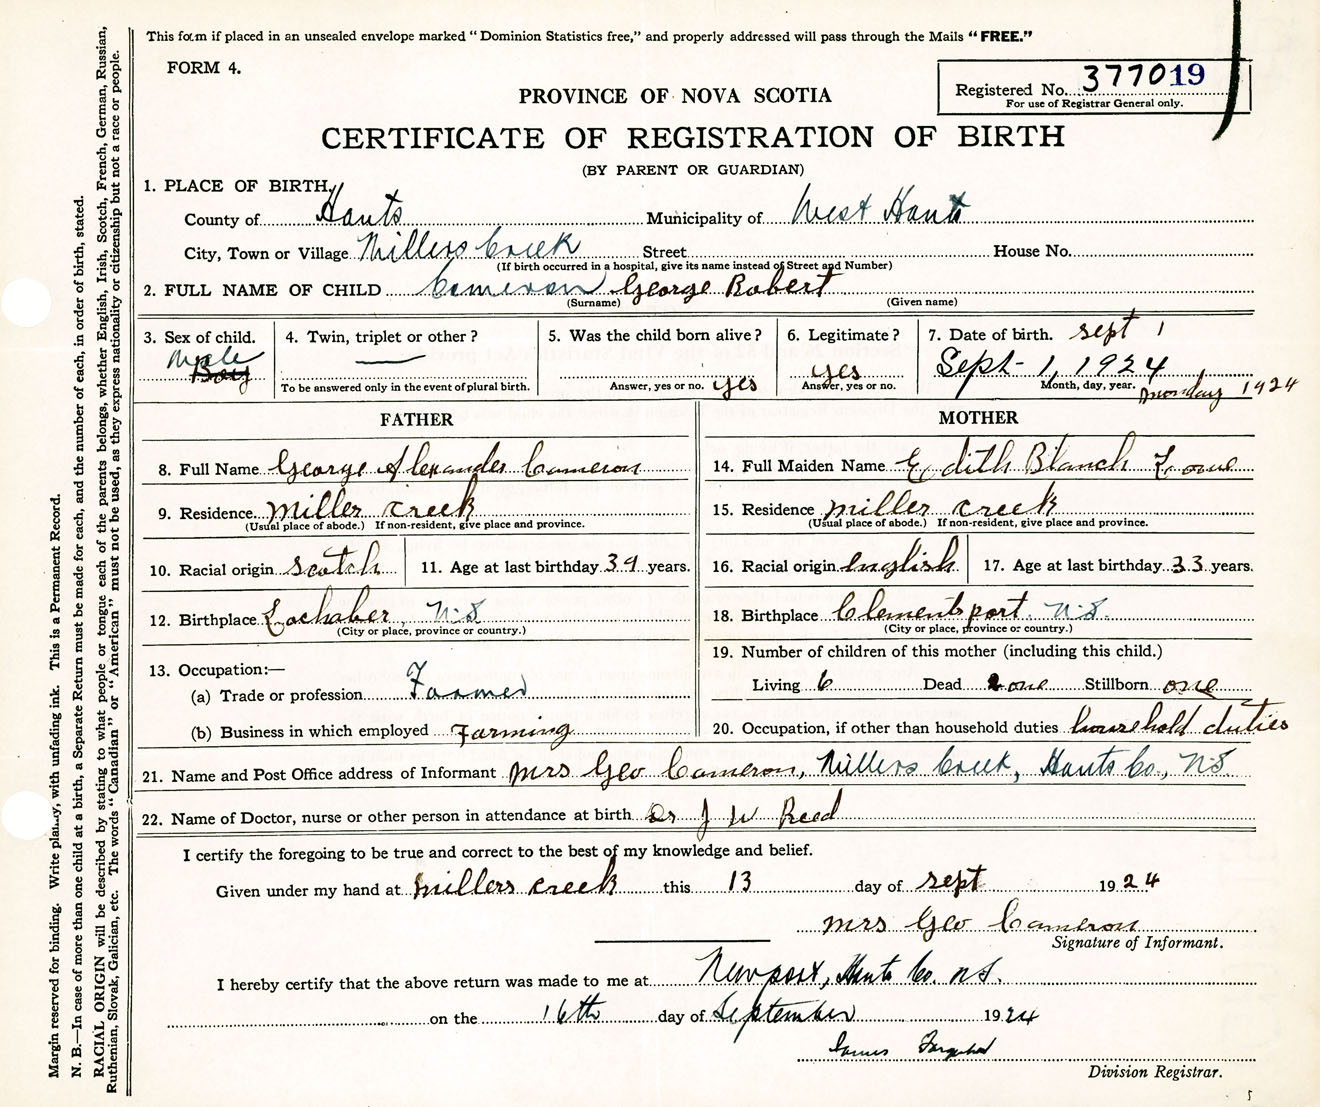 This form if placed in an unsealed envelope marked "Dominion Statistics free," and properly addressed will pass through the Mails "FREE."
FORM 4.
Registered No. 377019
For use of Registrar General only.
PROVINCE OF NOVA SCOTIA
CERTIFICATE OF REGISTRATION OF BIRTH
(BY PARENT OR GUARDIAN)
1. PLACE OF BIRTH,
County of Hants Municipality of West Hants
City, Town or Village Millers Creek Street House No.
(If birth occurred in a hospital, give its name instead of Street and Number)
2. FULL NAME OF CHILD Cameron George Robert
(Surname) (Given name)
3. Sex of child. 4. Twin, triplet or other? 5. Was the child born alive? 6. Legitimate? 7. Date of birth. sept 1
Male Boy — yes yes Sept - 1, 1924
To be answered only in the event of plural birth. Answer, yes or no. Answer, yes or no. Month, day, year. monday 1924
FATHER MOTHER
8. Full Name George Alexander Cameron
9. Residence Miller creek
(Usual place of abode.) If non-resident, give place and province.
10. Racial origin scotch 11. Age at last birthday 39 years.
12. Birthplace Lochaber, N.S
(City or place, province or country.)
13. Occupation:—
(a) Trade or profession Farmer
(b) Business in which employed Farming
14. Full Maiden Name Edith Blanch
15. Residence miller creek
(Usual place of abode.) If non-resident, give place and province.
16. Racial origin english 17. Age at last birthday 33 years.
18. Birthplace Clementsport. N.S.
(City or place, province or country.)
19. Number of children of this mother (including this child.)
Living 6 Dead one Stillborn one
20. Occupation, if other than household duties household duties
21. Name and Post Office address of Informant Mrs Geo Cameron, Millers Creek, Hants Co., N.S.
22. Name of Doctor, nurse or other person in attendance at birth Dr J W Reed
I certify the foregoing to be true and correct to the best of my knowledge and belief.
Given under my hand at millers creek this 13 day of sept 1924
mrs Geo Cameron
Signature of Informant.
I hereby certify that the above return was made to me at Newport, Hants Co. N.S.
on the 16th day of September 1924
James
Division Registrar.
Margin reserved for binding. Write plainly, with unfading ink. This is a Permanent Record.
N. B.—In case of more than one child at a birth, a Separate Return must be made for each, and the number of each, in order of birth, stated.
RACIAL ORIGIN will be described by stating to what people or tongue each of the parents belongs, whether English, Irish, Scotch, French, German, Russian,
Ruthenian, Slovak, Galician, etc. The words "Canadian" or "American" must not be used, as they express nationality or citizenship but not a race or people.